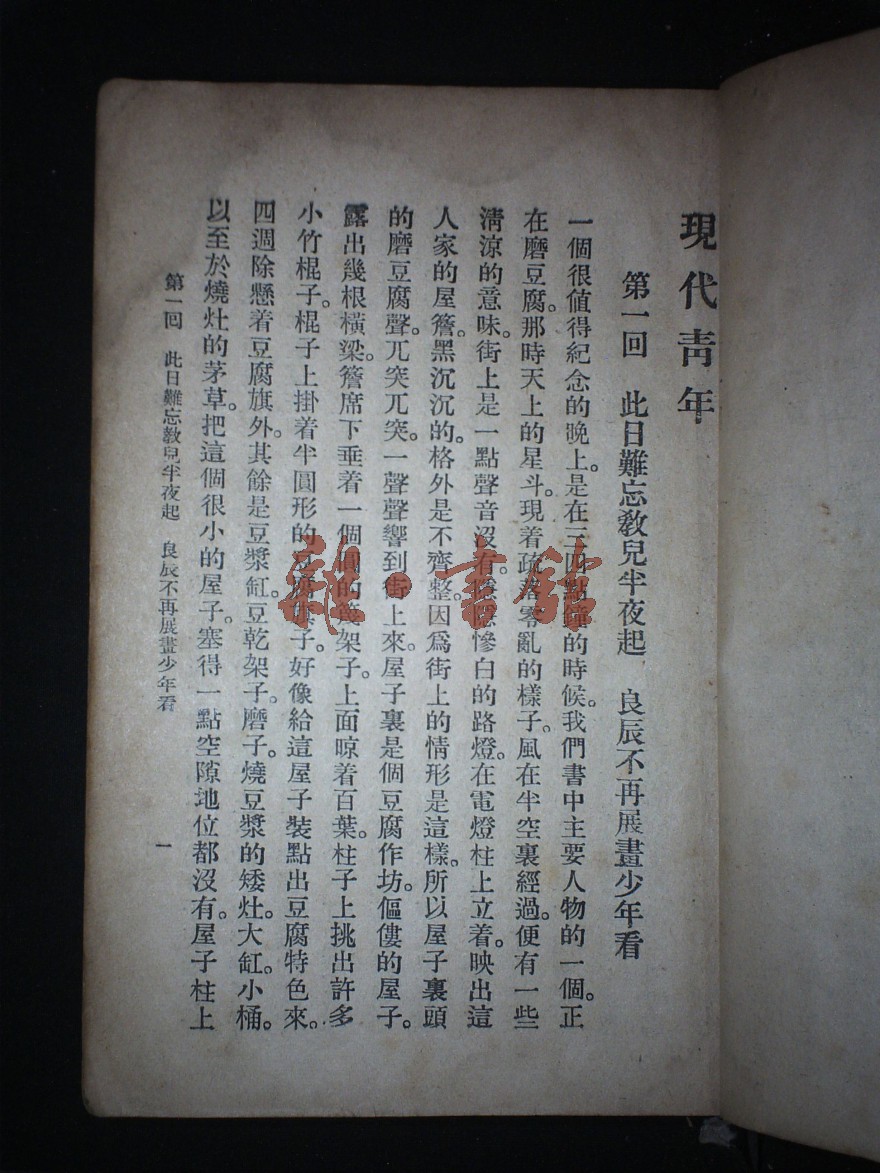 現代青年
第一回　此日難忘敎兒半夜起　良辰不再展畫少年看
一個很值得紀念的晚上。是在三四點鐘的時候。我們書中主要人物的一個。正
在磨豆腐。那時天上的星斗。現着疏落零亂的樣子。風在半空裏經過。便有一些
淸涼的意味。街上是一點聲音沒有。隱隱慘白的路燈。在電燈柱上立着。映出這
人家的屋簷。黑沉沉的。格外是不齊整。因爲街上的情形是這樣。所以屋子裏頭
的磨豆腐聲。兀突兀突。一聲聲響到街上來。屋子裏是個豆腐作坊。傴僂的屋子。
露出幾根橫梁。簷席下垂着一個圓的篾架子。上面晾着百葉。柱子上挑出許多
小竹棍子。棍子上掛着半圓形的豆腐旗子。好像給這屋子裝點出豆腐特色來。
四週除懸着豆腐旗外。其餘是豆漿缸。豆乾架子。磨子。燒豆漿的矮灶。大缸。小桶。
以至於燒灶的茅草。把這個很小的屋子。塞得一點空隙地位都沒有。屋子柱上
第一回　此日難忘敎兒半夜起　良辰不再展畫少年看
一
雜·書館